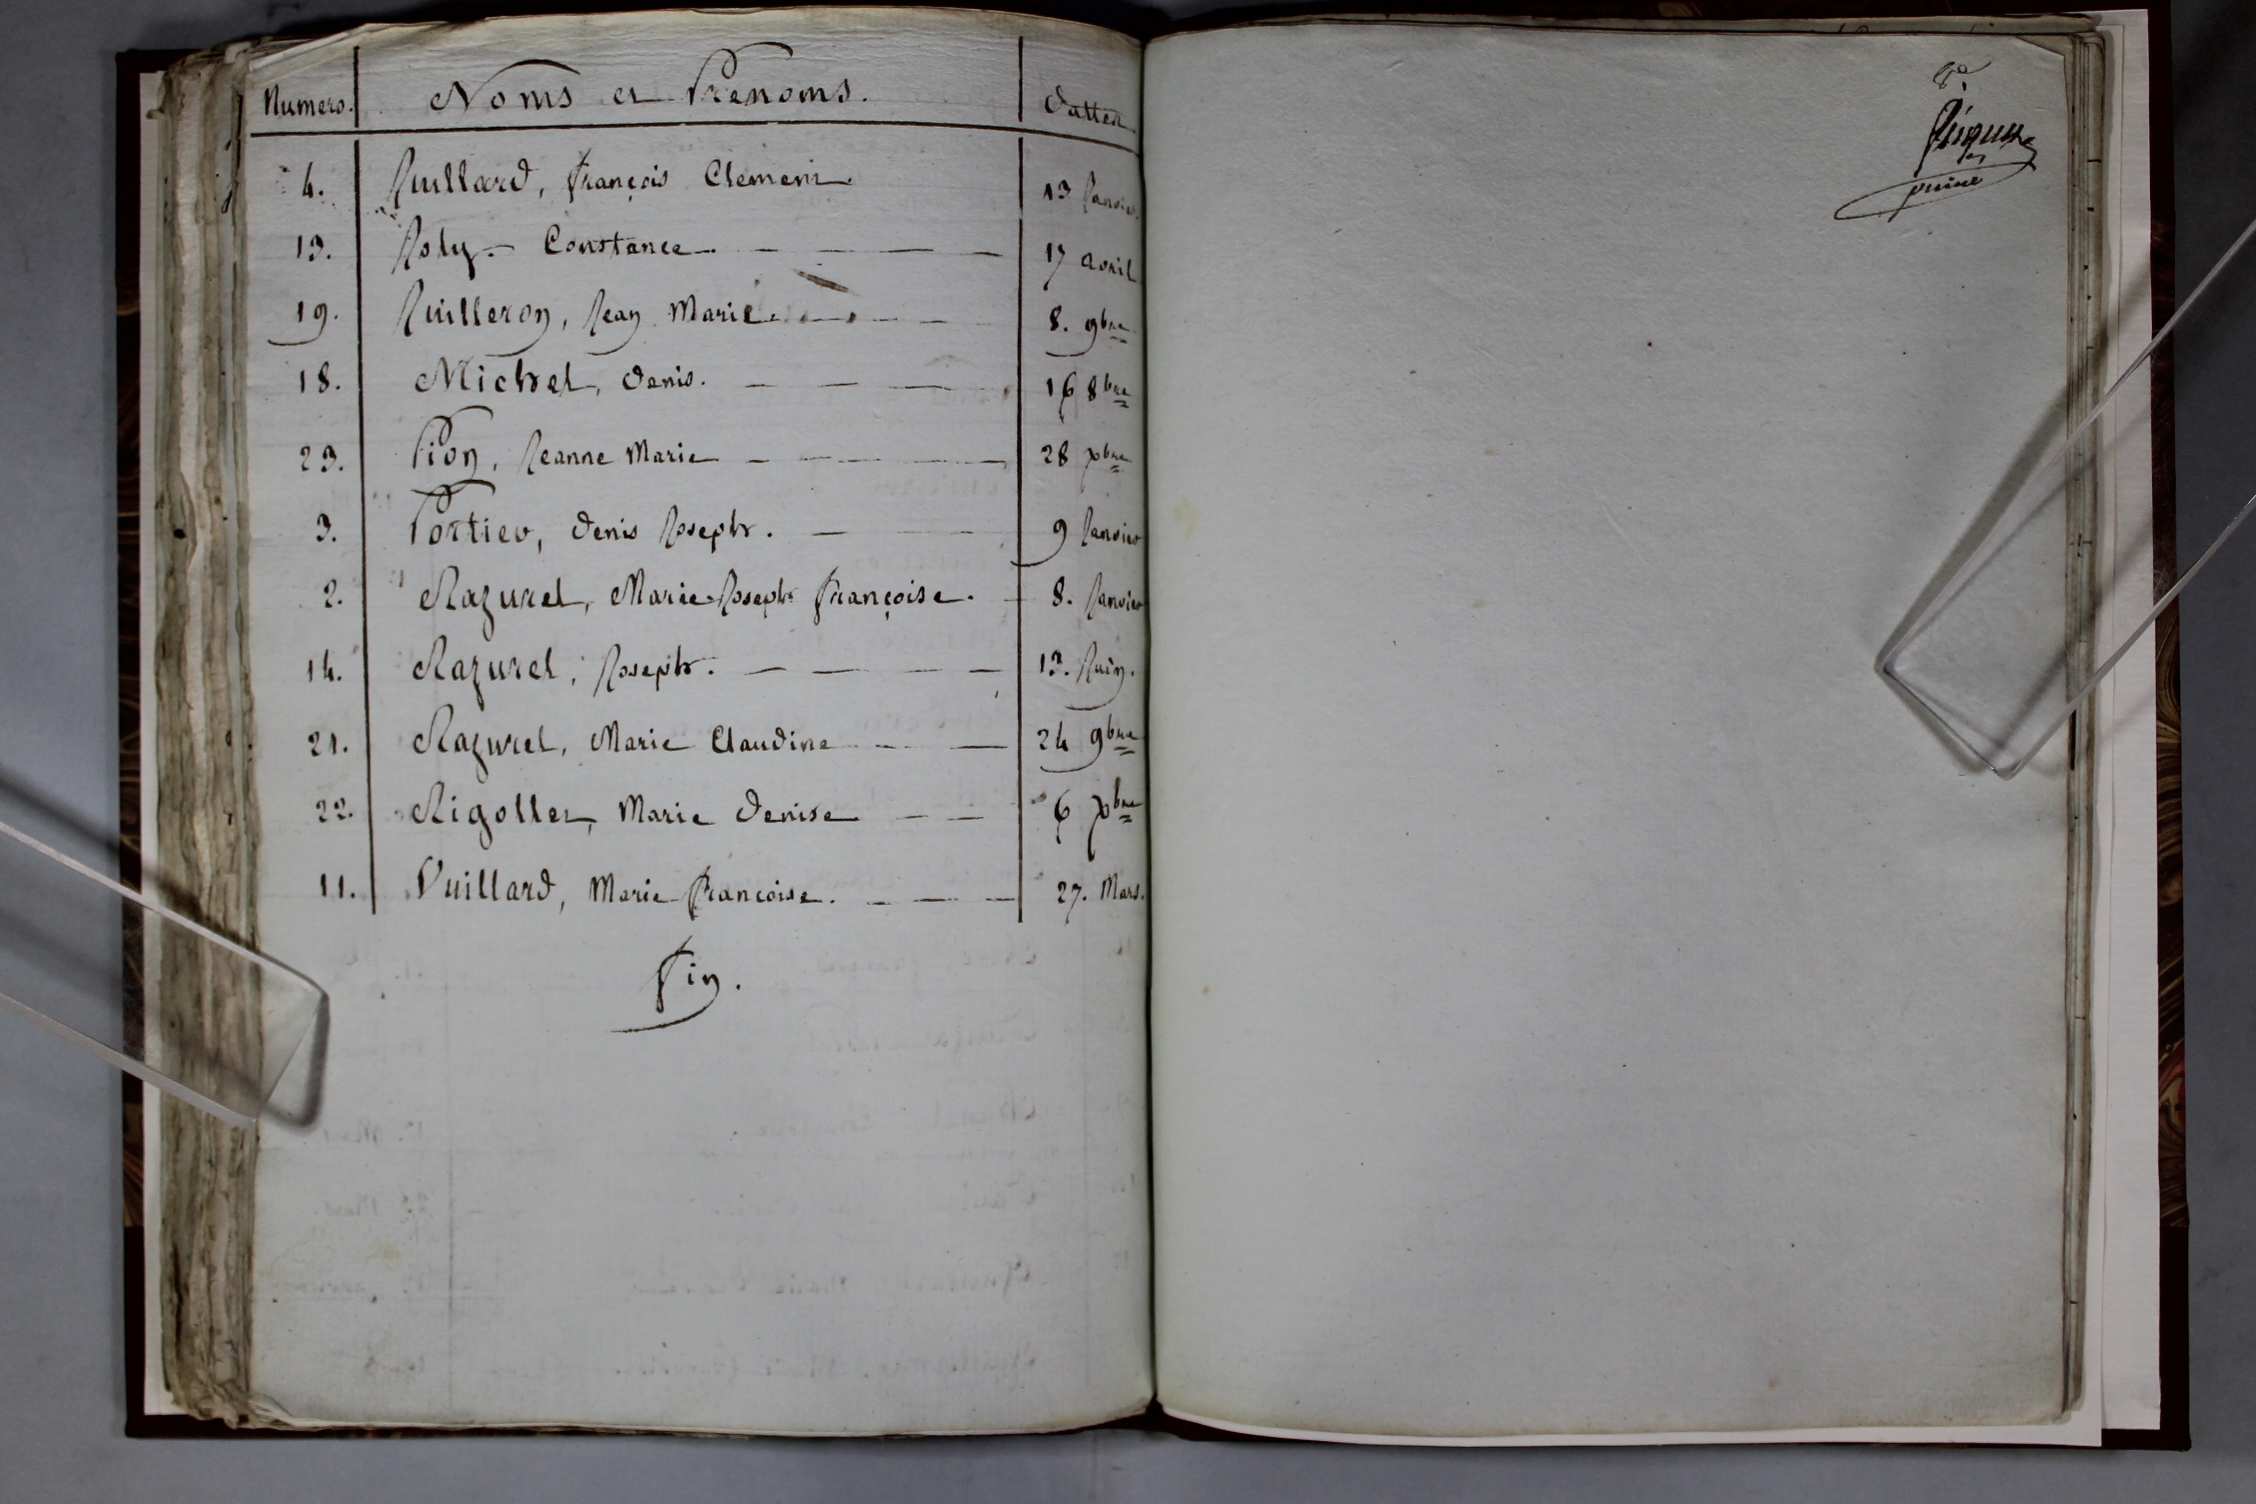 Numero. Noms et Prenoms. Dattes
4. Juillard, François Clement 13 Janvier.
13. Joly Constance 17 avril
19. Juilleron, Jean Marie 8. 9bre
18. Michel, Denis. 16 8bre
23. Pion, Jeanne Marie 28 xbre
3. Portier, Denis Joseph. 9 Janvier
2. Razurel, Marie Joseph Françoise. 8. Janvier
14. Razurel, Joseph. 13. Juin.
21. Razurel, Marie Claudine 24 9bre
22. Rigollet, Marie Denise 6 xbre
11. Vuillard, Marie Francoise. 27. Mars.
Fin.
8e.